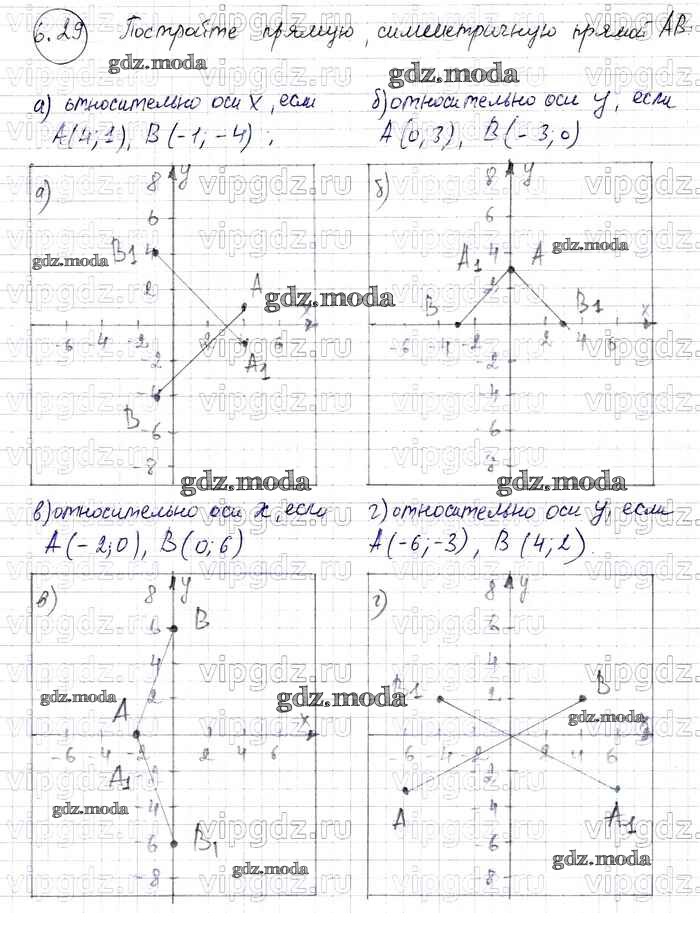 6.29 Постройте прямую, симметричную прямой AB:
gdz.moda gdz.moda
а) относительно оси x, если
A(4;1), B(-1;-4);
б) относительно оси y, если
A(0;3), B(-3;0)
а) 8 y
6
B1 4
2 A
-6 -4 -2 2 4 6 x
-2 A1
B -4
-6
-8
gdz.moda
gdz.moda
gdz.moda
б) 8 y
6
4
A1 A
2
B B1 x
-6 -4 -2 2 4 6
-2
-4
-6
-8
gdz.moda
gdz.moda
в) относительно оси x, если
A(-2;0), B(0;6)
г) относительно оси y, если
A(-6;-3), B(4;2).
в) 8 y
6 B
4
2
A x
-6 -4 -2 2 4 6
A1 -2
-4
-6 B1
-8
gdz.moda
gdz.moda
gdz.moda
gdz.moda
г) 8 y
6
4
B1 2 B
x
-6 -4 -2 2 4 6
-2
A -4 A1
-6
-8
gdz.moda
gdz.moda
vipgdz.ru